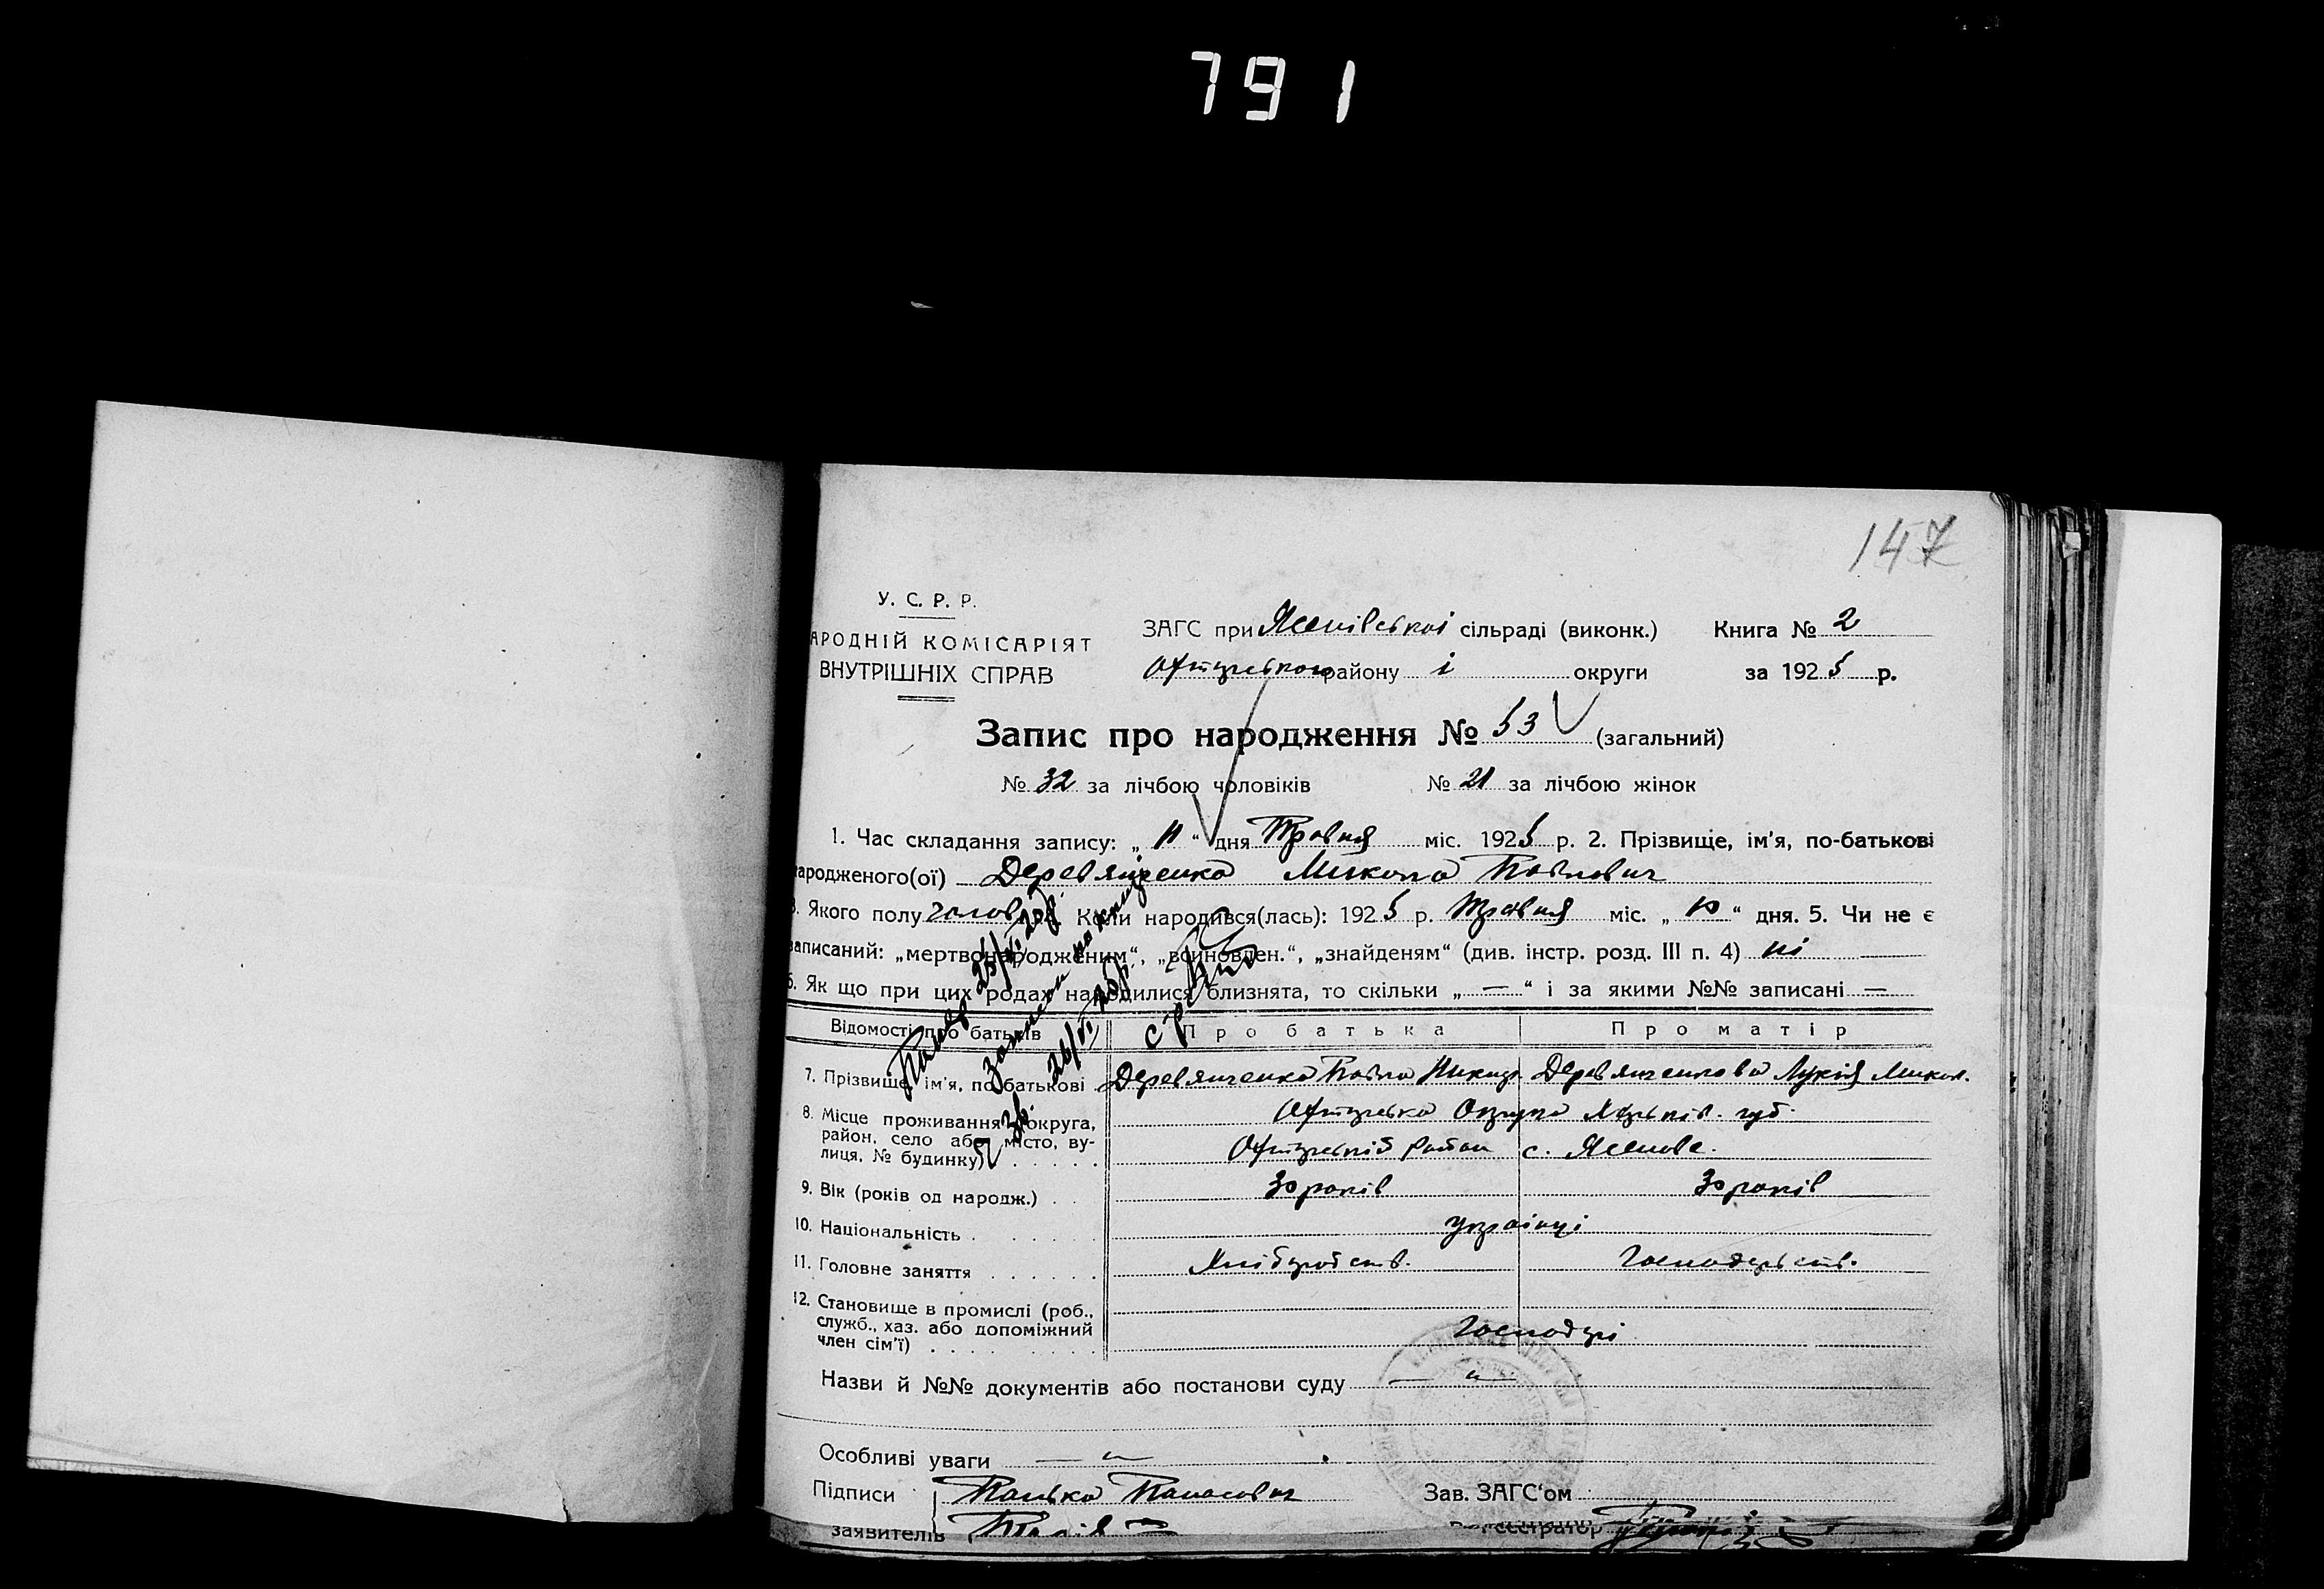 791
147
У. С. Р. Р.
АРОДНІЙ КОМІСАРІЯТ
ВНУТРІШНІХ СПРАВ
ЗАГС при Ясенівської сільраді (виконк.) Книга № 2
Охтирського району і округи за 1925 р.
Запис про народження № 53 (загальний)
№ 32 за лічбою чоловіків № 21 за лічбою жінок
1. Час складання запису: „ 11 “ дня Травня міс. 1925 р. 2. Прізвище, ім'я, по-батькові
народженого(ої) Деревянченко Микола Павлович
3. Якого полу чолов. Коли народився(лась): 1925 р. Травня міс. „ 10 “ дня. 5. Чи не є
записаний: „мертвонародженим“, „всиновлен.“, „знайденям“ (див. інстр. розд. III п. 4) ні
6. Як що при цих родах народилися близнята, то скільки „ — “ і за якими №№ записані —
Відомості про батьків Про батька Про матір
7. Прізвище, ім'я, по батькові Деревянченко Павло Никиф. Деревянченкова Лукія Микол.
8. Місце проживання (округа, район, село або місто, вулиця, № будинку) Охтирська Округа Харьків. губ.
Охтирський район с. Ясенове.
9. Вік (років од народж.) 30 років 30 років
10. Національність українці
11. Головне заняття Хліборобств. Господарств.
12. Становище в промислі (роб., служб., хаз. або допоміжний член сім'ї) Господарі
Назви й №№ документів або постанови суду — „ —
Особливі уваги — „ —
Підписи Панасович Зав. ЗАГС'ом
заявителів Реєстратор